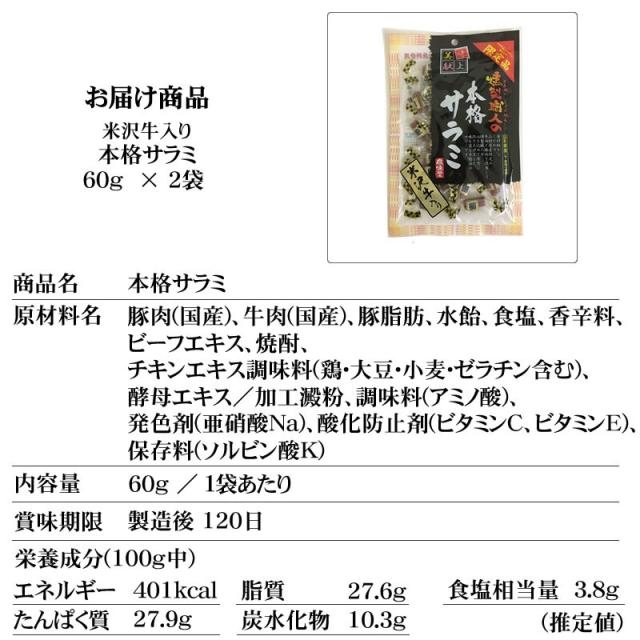 お届け商品
米沢牛入り
本格サラミ
60g × 2袋
限定品
味上
美献
燻製職人の
本格サラミ
米沢牛入り
商品名 本格サラミ
原材料名 豚肉(国産)、牛肉(国産)、豚脂肪、水飴、食塩、香辛料、
ビーフエキス、焼酎、
チキンエキス調味料(鶏・大豆・小麦・ゼラチン含む)、
酵母エキス／加工澱粉、調味料(アミノ酸)、
発色剤(亜硝酸Na)、酸化防止剤(ビタミンC、ビタミンE)、
保存料(ソルビン酸K)
内容量 60g ／ 1袋あたり
賞味期限 製造後 120日
栄養成分(100g中)
エネルギー 401kcal 脂質 27.6g 食塩相当量 3.8g
たんぱく質 27.9g 炭水化物 10.3g (推定値)